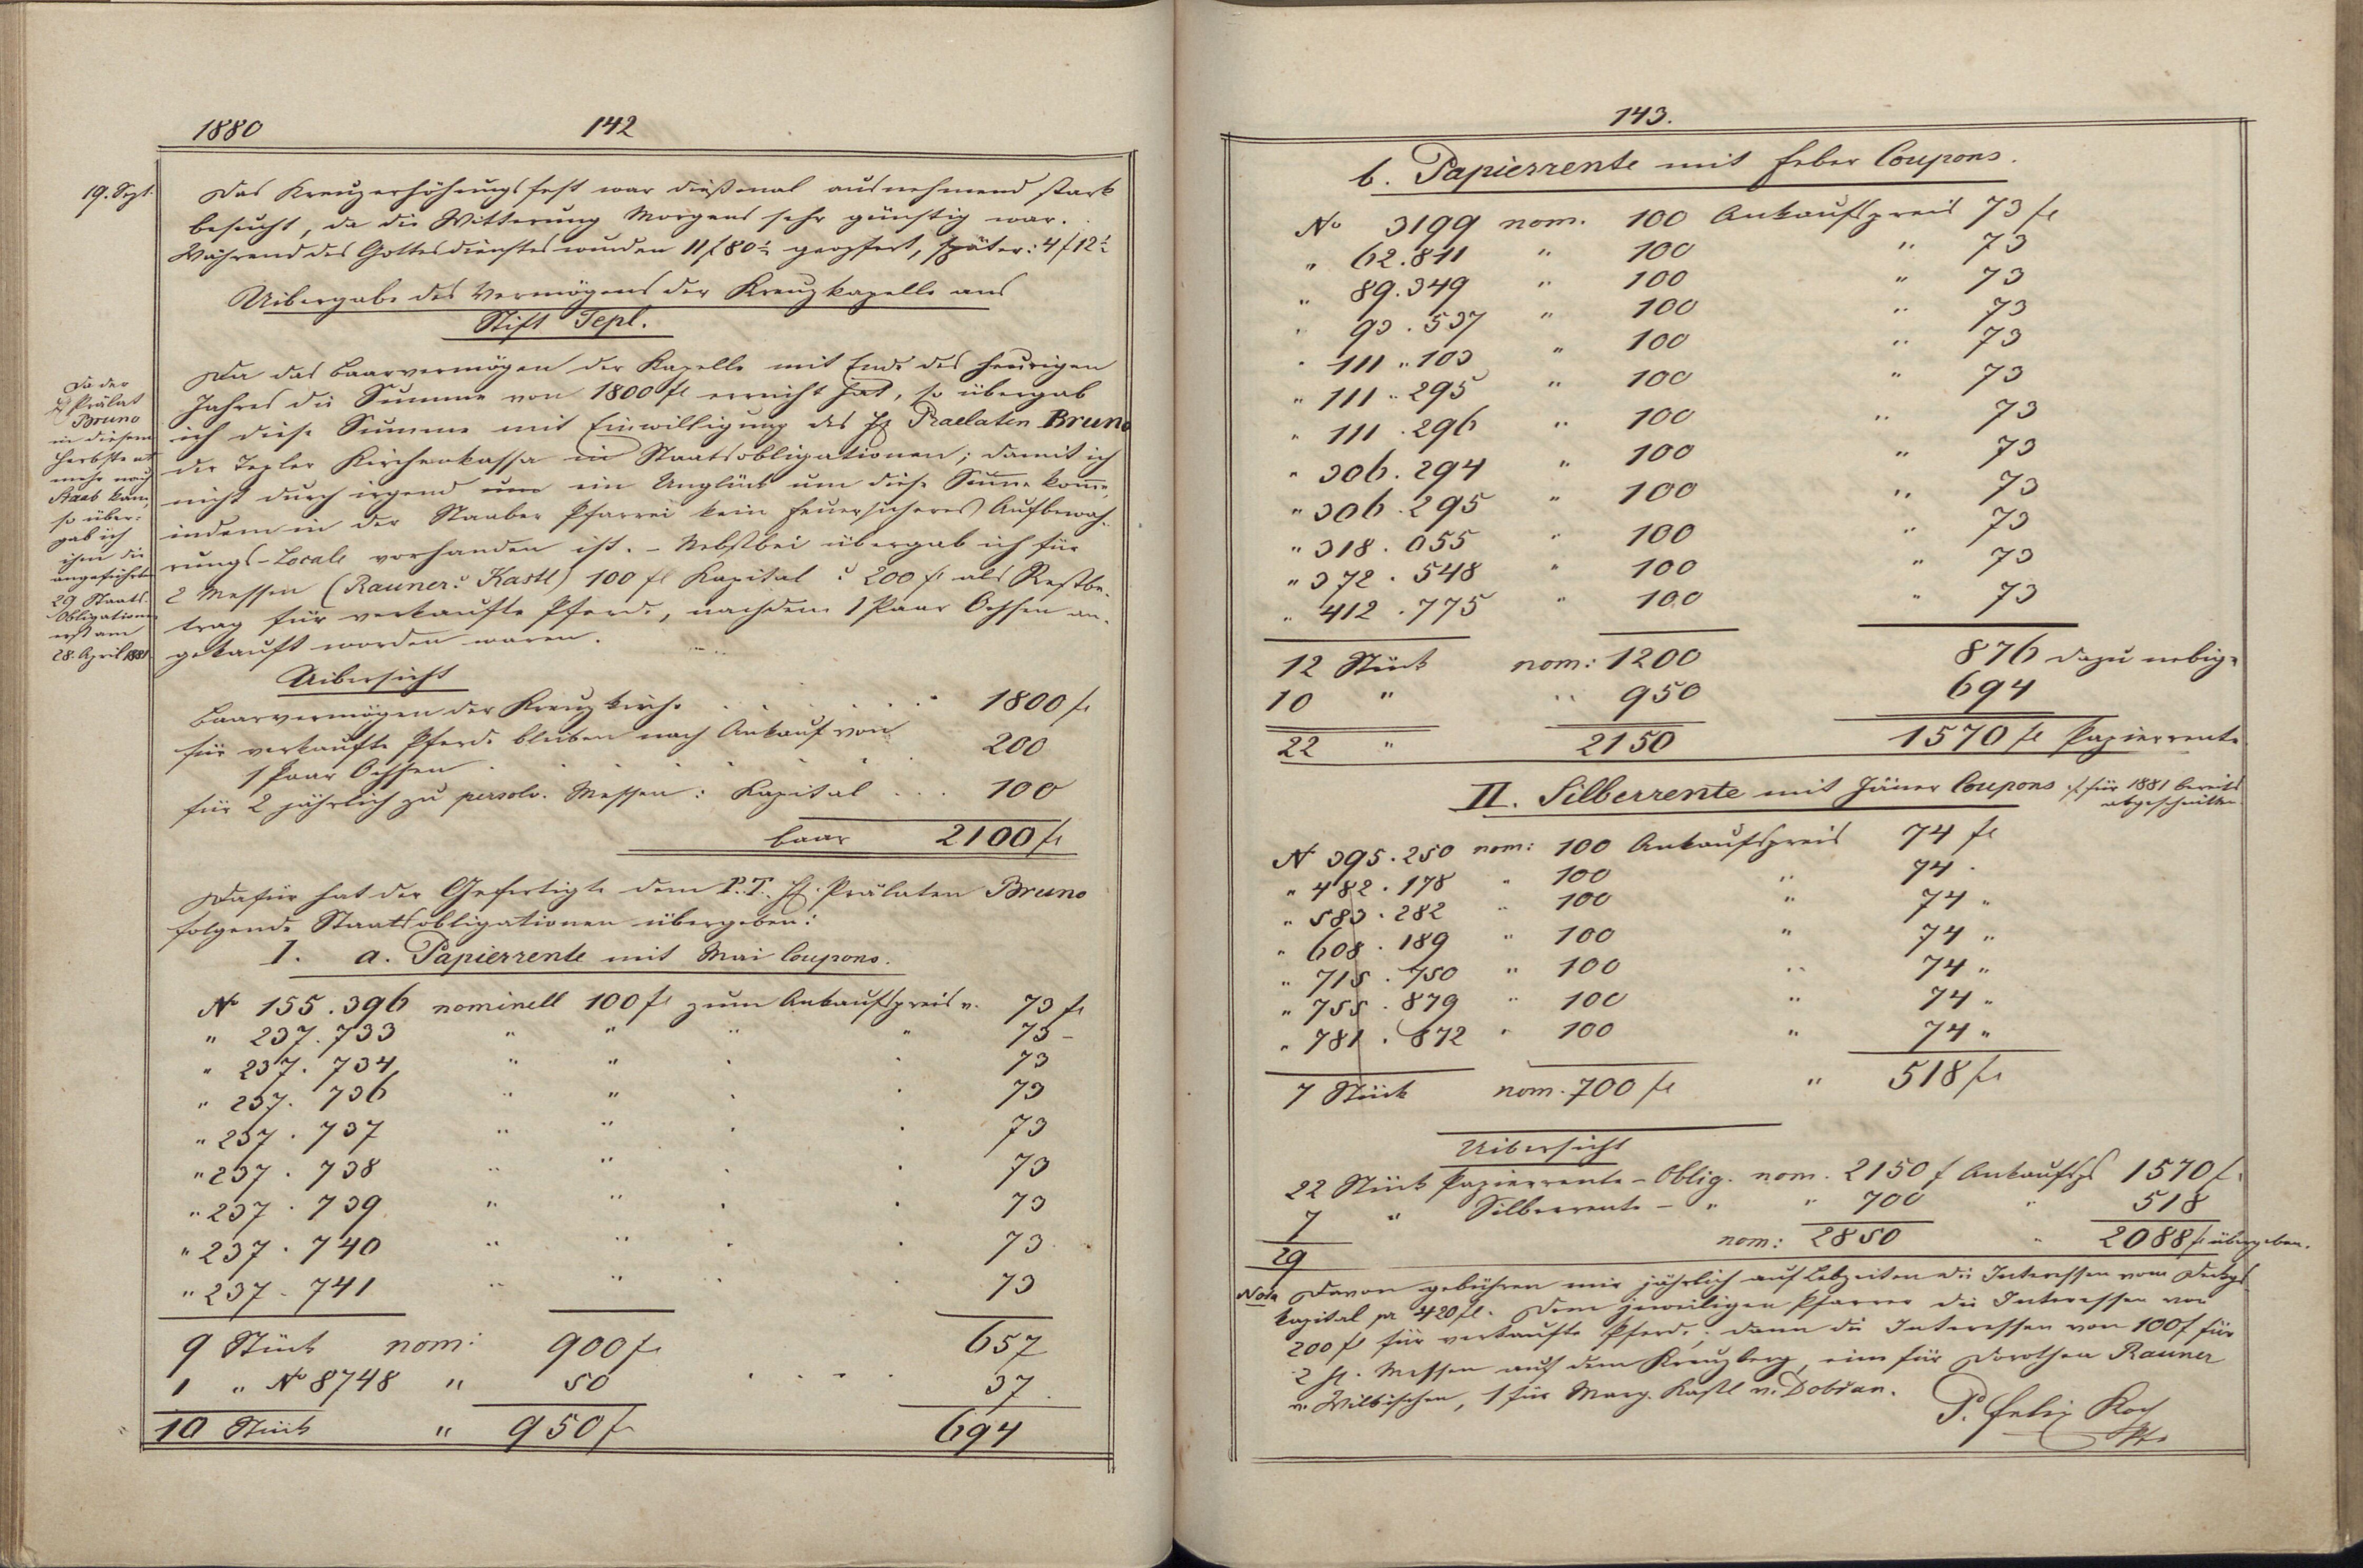 1880
142
19. Sept.
Das Kreuzerhöhungsfest war dießmal ausnehmend stark
besucht, da die Witterung Morgens sehr günstig war.
Während des Gottesdienstes wurden 11 f 80 x geopfert, später: 4 f 12 x
Uibergabe des Vermögens der Kreuzkapelle ans
Stift Tepl.
Da das Baarvermögen der Kapelle mit Ende des heurigen
Jahres die Summe von 1800 fl erreicht hat, so übergab
ich diese Summe mit Einwilligung des H Praelaten Bruno
der Tepler Kirchenkassa in Staatsobligationen; damit ich
nicht durch irgend um ein Unglück um diese Summe komme,
indem in der Staaber Pfarrei kein feuersicheres Aufbewah-
rungs-Locale vorhanden ist. – Nebstbei übergab ich für
2 Messen (Rauner: Kastl) 100 fl Kapital : 200 fl als Restbe-
trag für verkaufte Pferde, nachdem 1 Paar Ochsen an-
gekauft worden waren.
Da der
H Prälat
Bruno
in diesem
Herbste nt
mehr nach
Staab kam,
so über-
gab ich
ihm die
angeführten
29 Staats-
Obligationen
erst am
28. April 1881
Uibersicht
Baarvermögen der Kreuzkirche . . . . . 1800 fl
für verkaufte Pferde bleiben nach Ankauf von
1 Paar Ochsen . . . . . 200
für 2 jährlich zu persolv. Messen: Kapital . . . 100
baar 2100 fl
Dafür hat der Gefertigte dem P.T. H. Prälaten Bruno
folgende Staatsobligationen übergeben:
I. a. Papierrente mit Mai Coupons.
No 155.396 nominell 100 fl zum Ankaufspreis v. 73 fl
" 237.733 " " " " 73 –
" 237.734 " " " " 73
" 237.736 " " " " 73
" 237.737 " " " " 73
" 237.738 " " " " 73
" 237.739 " " " " 73
" 237.740 " " " " 73
" 237.741 " " " " 73
9 Stück nom: 900 fl 657
1 " No 8748 " 50 . . . . 37
10 Stück " 950 fl 694
143.
b. Papierrente mit Feber Coupons.
No 3199 nom. 100 Ankaufspreis 73 fl
" 62.811 " 100 " 73
" 89.349 " 100 " 73
" 93.537 " 100 " 73
" 111.103 " 100 " 73
" 111.295 " 100 " 73
" 111.296 " 100 " 73
" 306.294 " 100 " 73
" 306.295 " 100 " 73
" 318.055 " 100 " 73
" 372.548 " 100 " 73
" 412.775 " 100 " 73
12 Stück nom: 1200 876 dazu nebige
10 " " 950 694
22 " 2150 1570 fl Papierrente
II. Silberrente mit Jäner Coupons für 1881 bereits
abgeschnitten
No 395.250 nom: 100 Ankaufspreis 74 fl
" 482.178 " 100 " 74 "
" 583.282 " 100 " 74 "
" 608.189 " 100 " 74 "
" 715.750 " 100 " 74 "
" 755.879 " 100 " 74 "
" 781.872 " 100 " 74 "
7 Stück nom. 700 fl " 518 fl
Uibersicht
22 Stück Papierrente-Oblig. nom. 2150 f Ankaufsps 1570 f.
7 " Silberrente – " " 700 " 518
29 nom: 2850 " 2088 fl übergeben.
Nota Davon gebühren mir jährlich auf Lebzeiten die Interessen vom
Kapital pr 420 fl. Dem jeweiligen Pfarrer die Interessen von
200 fl für verkaufte Pferde; dann die Interessen von 100 f für
2 hl. Messen auf dem Kreuzberg, eine für Dorothea Rauner
v. Wilkischen, 1 für Marg. Kastl v. Dobřan.
P. Felix Koch